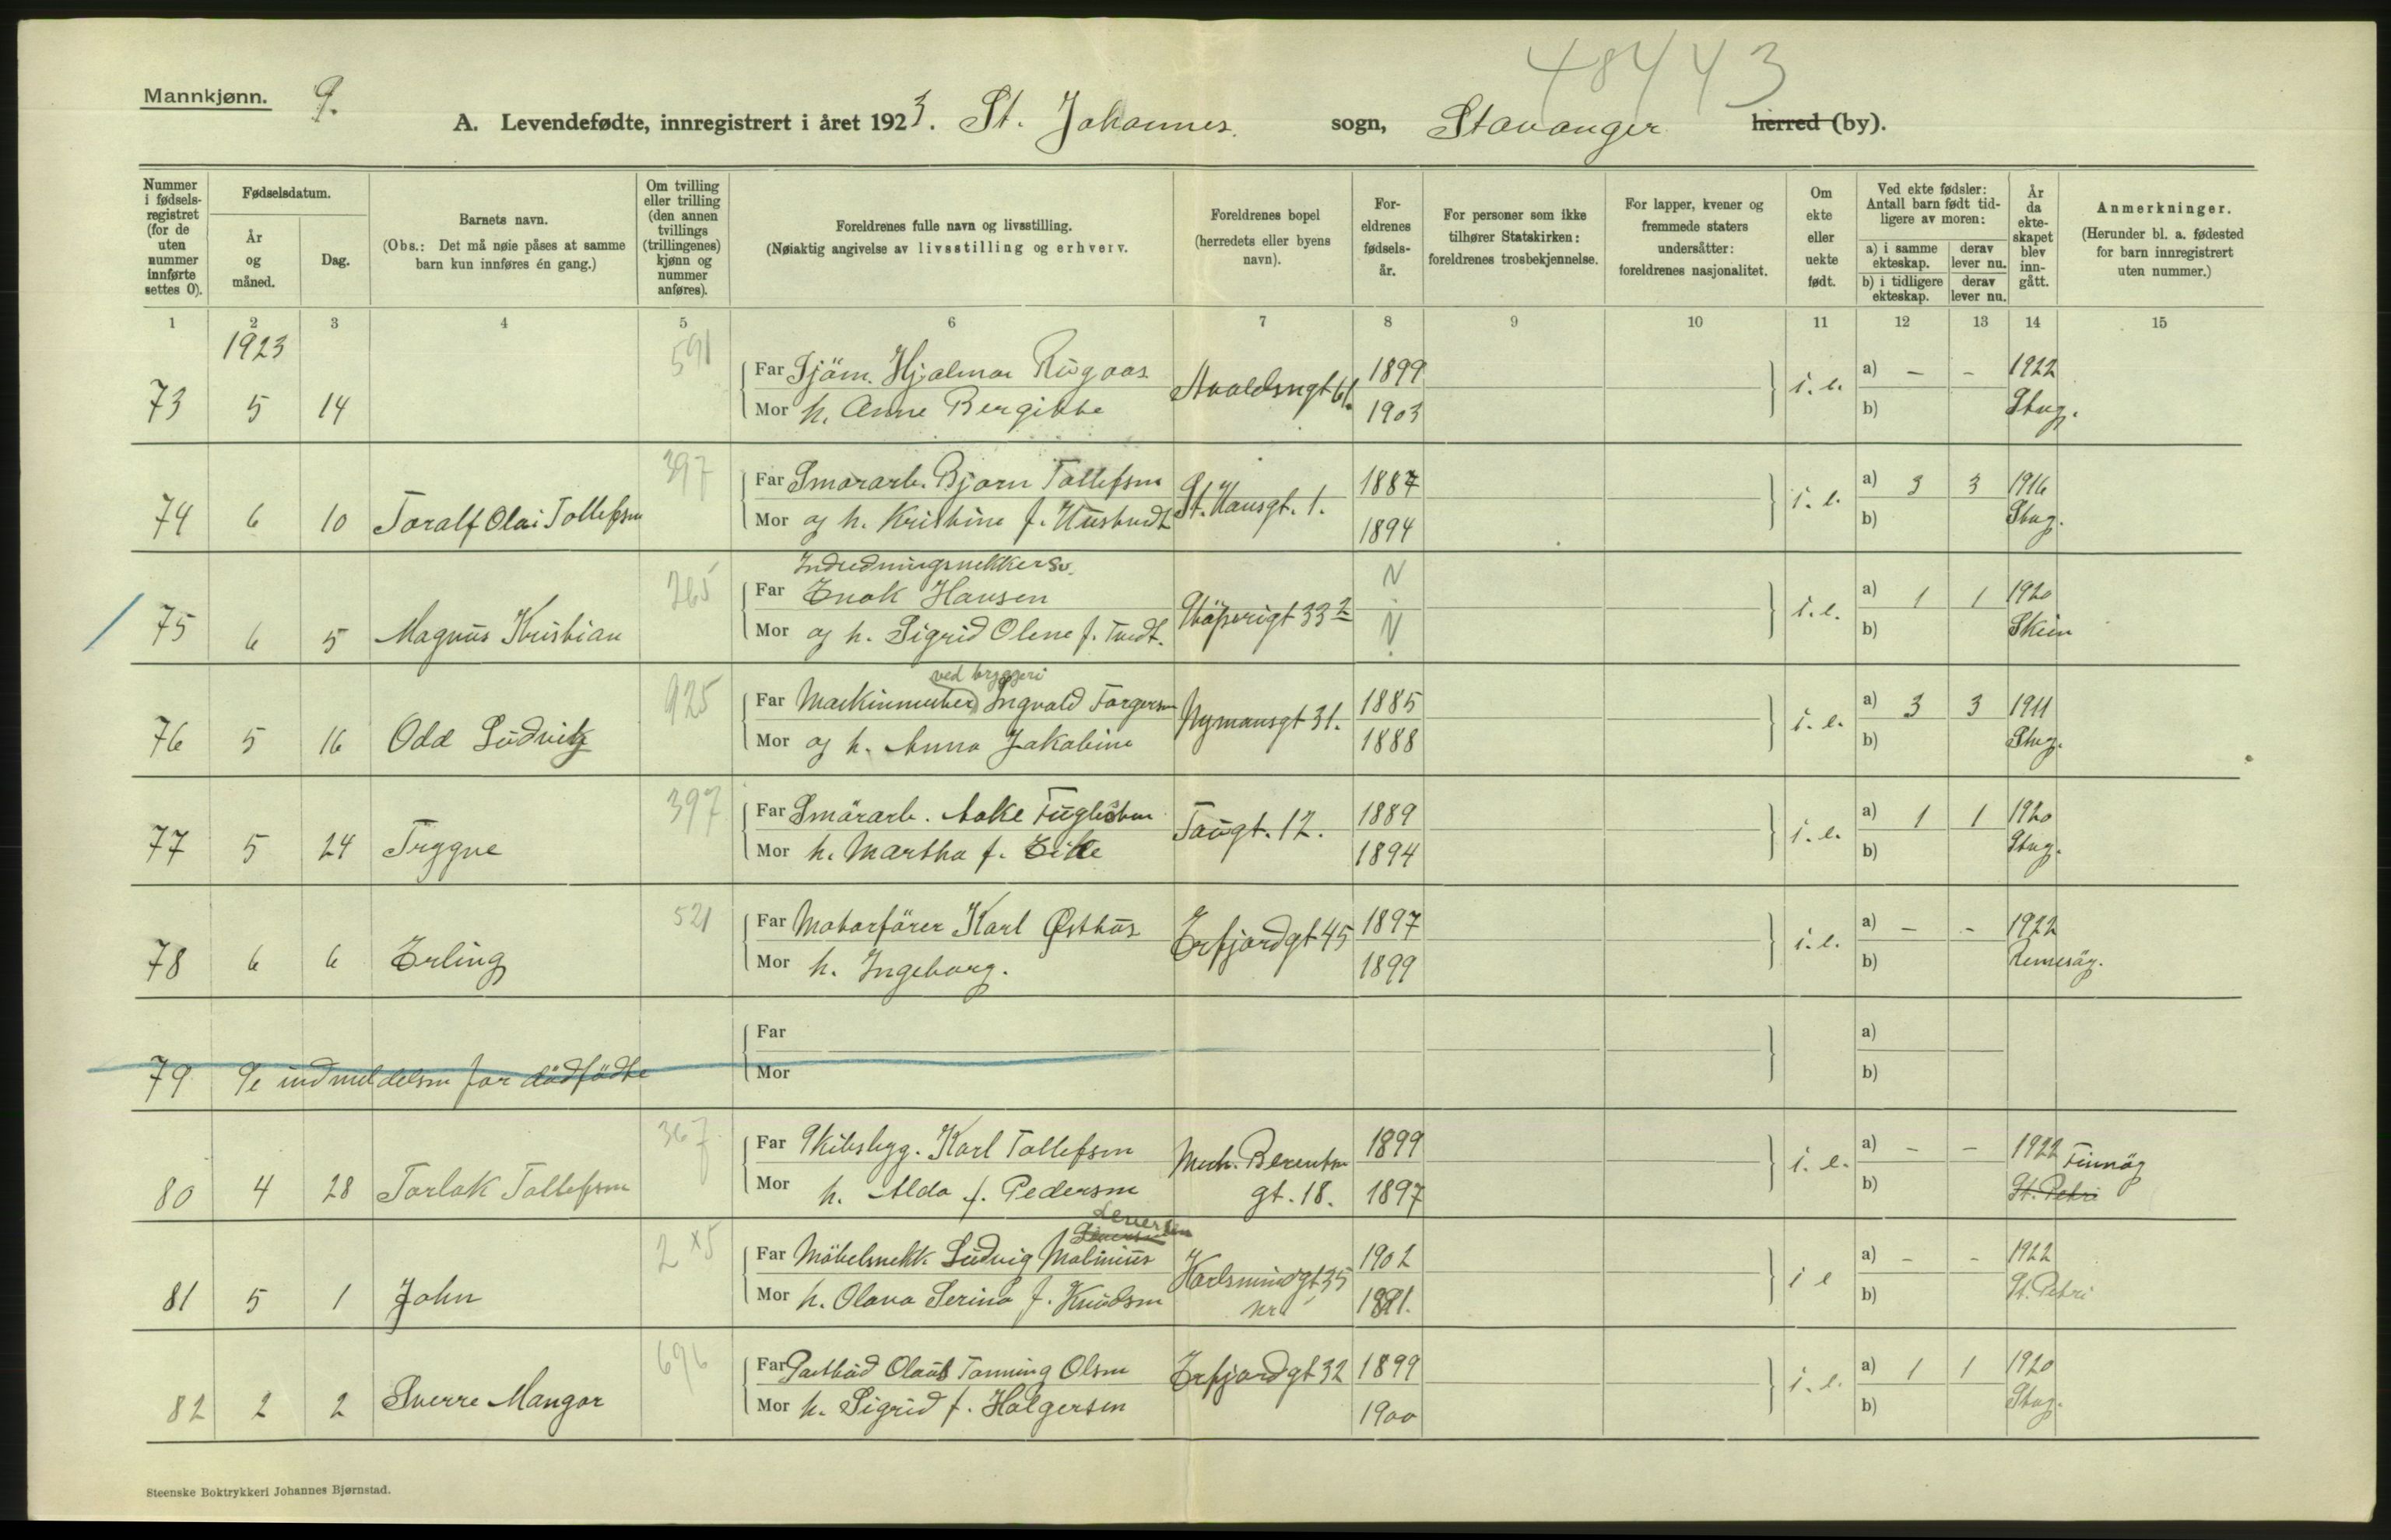 48443
Mannkjønn. 9.
A. Levendefødte, innregistrert i året 1923. St. Johannes. sogn, Stavanger herred (by).
Nummer i fødsels-registret (for de uten nummer innførte settes 0).
Fødselsdatum.
År og måned.
Dag.
Barnets navn.
(Obs.: Det må nøie påses at samme barn kun innføres én gang.)
Om tvilling eller trilling (den annen tvillings (trillingenes) kjønn og nummer anføres).
Foreldrenes fulle navn og livsstilling.
(Nøiaktig angivelse av livsstilling og erhverv.
Foreldrenes bopel (herredets eller byens navn).
For-eldrenes fødsels-år.
For personer som ikke tilhører Statskirken: foreldrenes trosbekjennelse.
For lapper, kvener og fremmede staters undersåtter: foreldrenes nasjonalitet.
Om ekte eller uekte født.
Ved ekte fødsler: Antall barn født tid-ligere av moren:
a) i samme ekteskap. derav lever nu.
b) i tidligere ekteskap. derav lever nu.
År da ekte-skapet blev inn-gått.
Anmerkninger.
(Herunder bl. a. fødested for barn innregistrert uten nummer.)
1 2 3 4 5 6 7 8 9 10 11 12 13 14 15
1923
591 Far Sjöm. Hjalmar Rügaas 1899 a) - - 1922
73 5 14 Mor h. Anne Bergitte 1903 i. e. b) Stvg.
397 Far Smörarb. Bjarn Tollefsen St. Hansgt. 1. 1887 a) 3 3 1916
74 6 10 Toralf Olai Tollefsen Mor og h. Kristine f. 1894 i. e. b) Stvg.
Indredningsnekkersv.
265 Far Enok Hansen N a) 1 1 1920
75 6 5 Magnus Kristian Mor og h. Sigrid Olene f. Tvedt. Støperigt 33 2 N i. e. b) Skien
ved bryggeri
925 Far Maskinmester Ingvald Torgersen Nymansgt 31. 1885 a) 3 3 1911
76 5 16 Odd Ludvik Mor og h. Anna Jakobine 1888 i. e. b) Stvg.
397 Far Smörarb. Aake Fuglestvn Taugt. 12. 1889 a) 1 1 1920
77 5 24 Trygve Mor h. Martha f. Eike 1894 i. e. b) Stvg.
521 Far Motorförer Karl Østhus Erfjordgt 45 1897 a) - - 1922
78 6 6 Erling Mor h. Ingeborg. 1899 i. e. b) Rennesöy.
Far a)
79 Se indmeldelsen for dödfödte Mor b)
367 Far Skibsbyg. Karl Tollefsen Mich. Berentsen 1899 a) - - 1922 Finnöy
80 4 28 Torlak Tollefsen Mor h. Alda f. Pedersen gt. 18. 1897 i. e. b) St. Petri
Seversen
2 x5 Far Möbelsnekk. Ludvig Malinius Karlsmindgt 35 1902 a) - - 1922
81 5 1 John Mor h. Olava Serina f. Knudsen 1881. i e b) St. Petri
696 Far Postbud Olaus Tonning Olsen Erfjordgt 32 1899 a) 1 1 1920
82 2 2 Sverre Mangor Mor h. Sigrid f. Holgersen 1900 i. e. b) Stvg.
Steenske Boktrykkeri Johannes Bjørnstad.